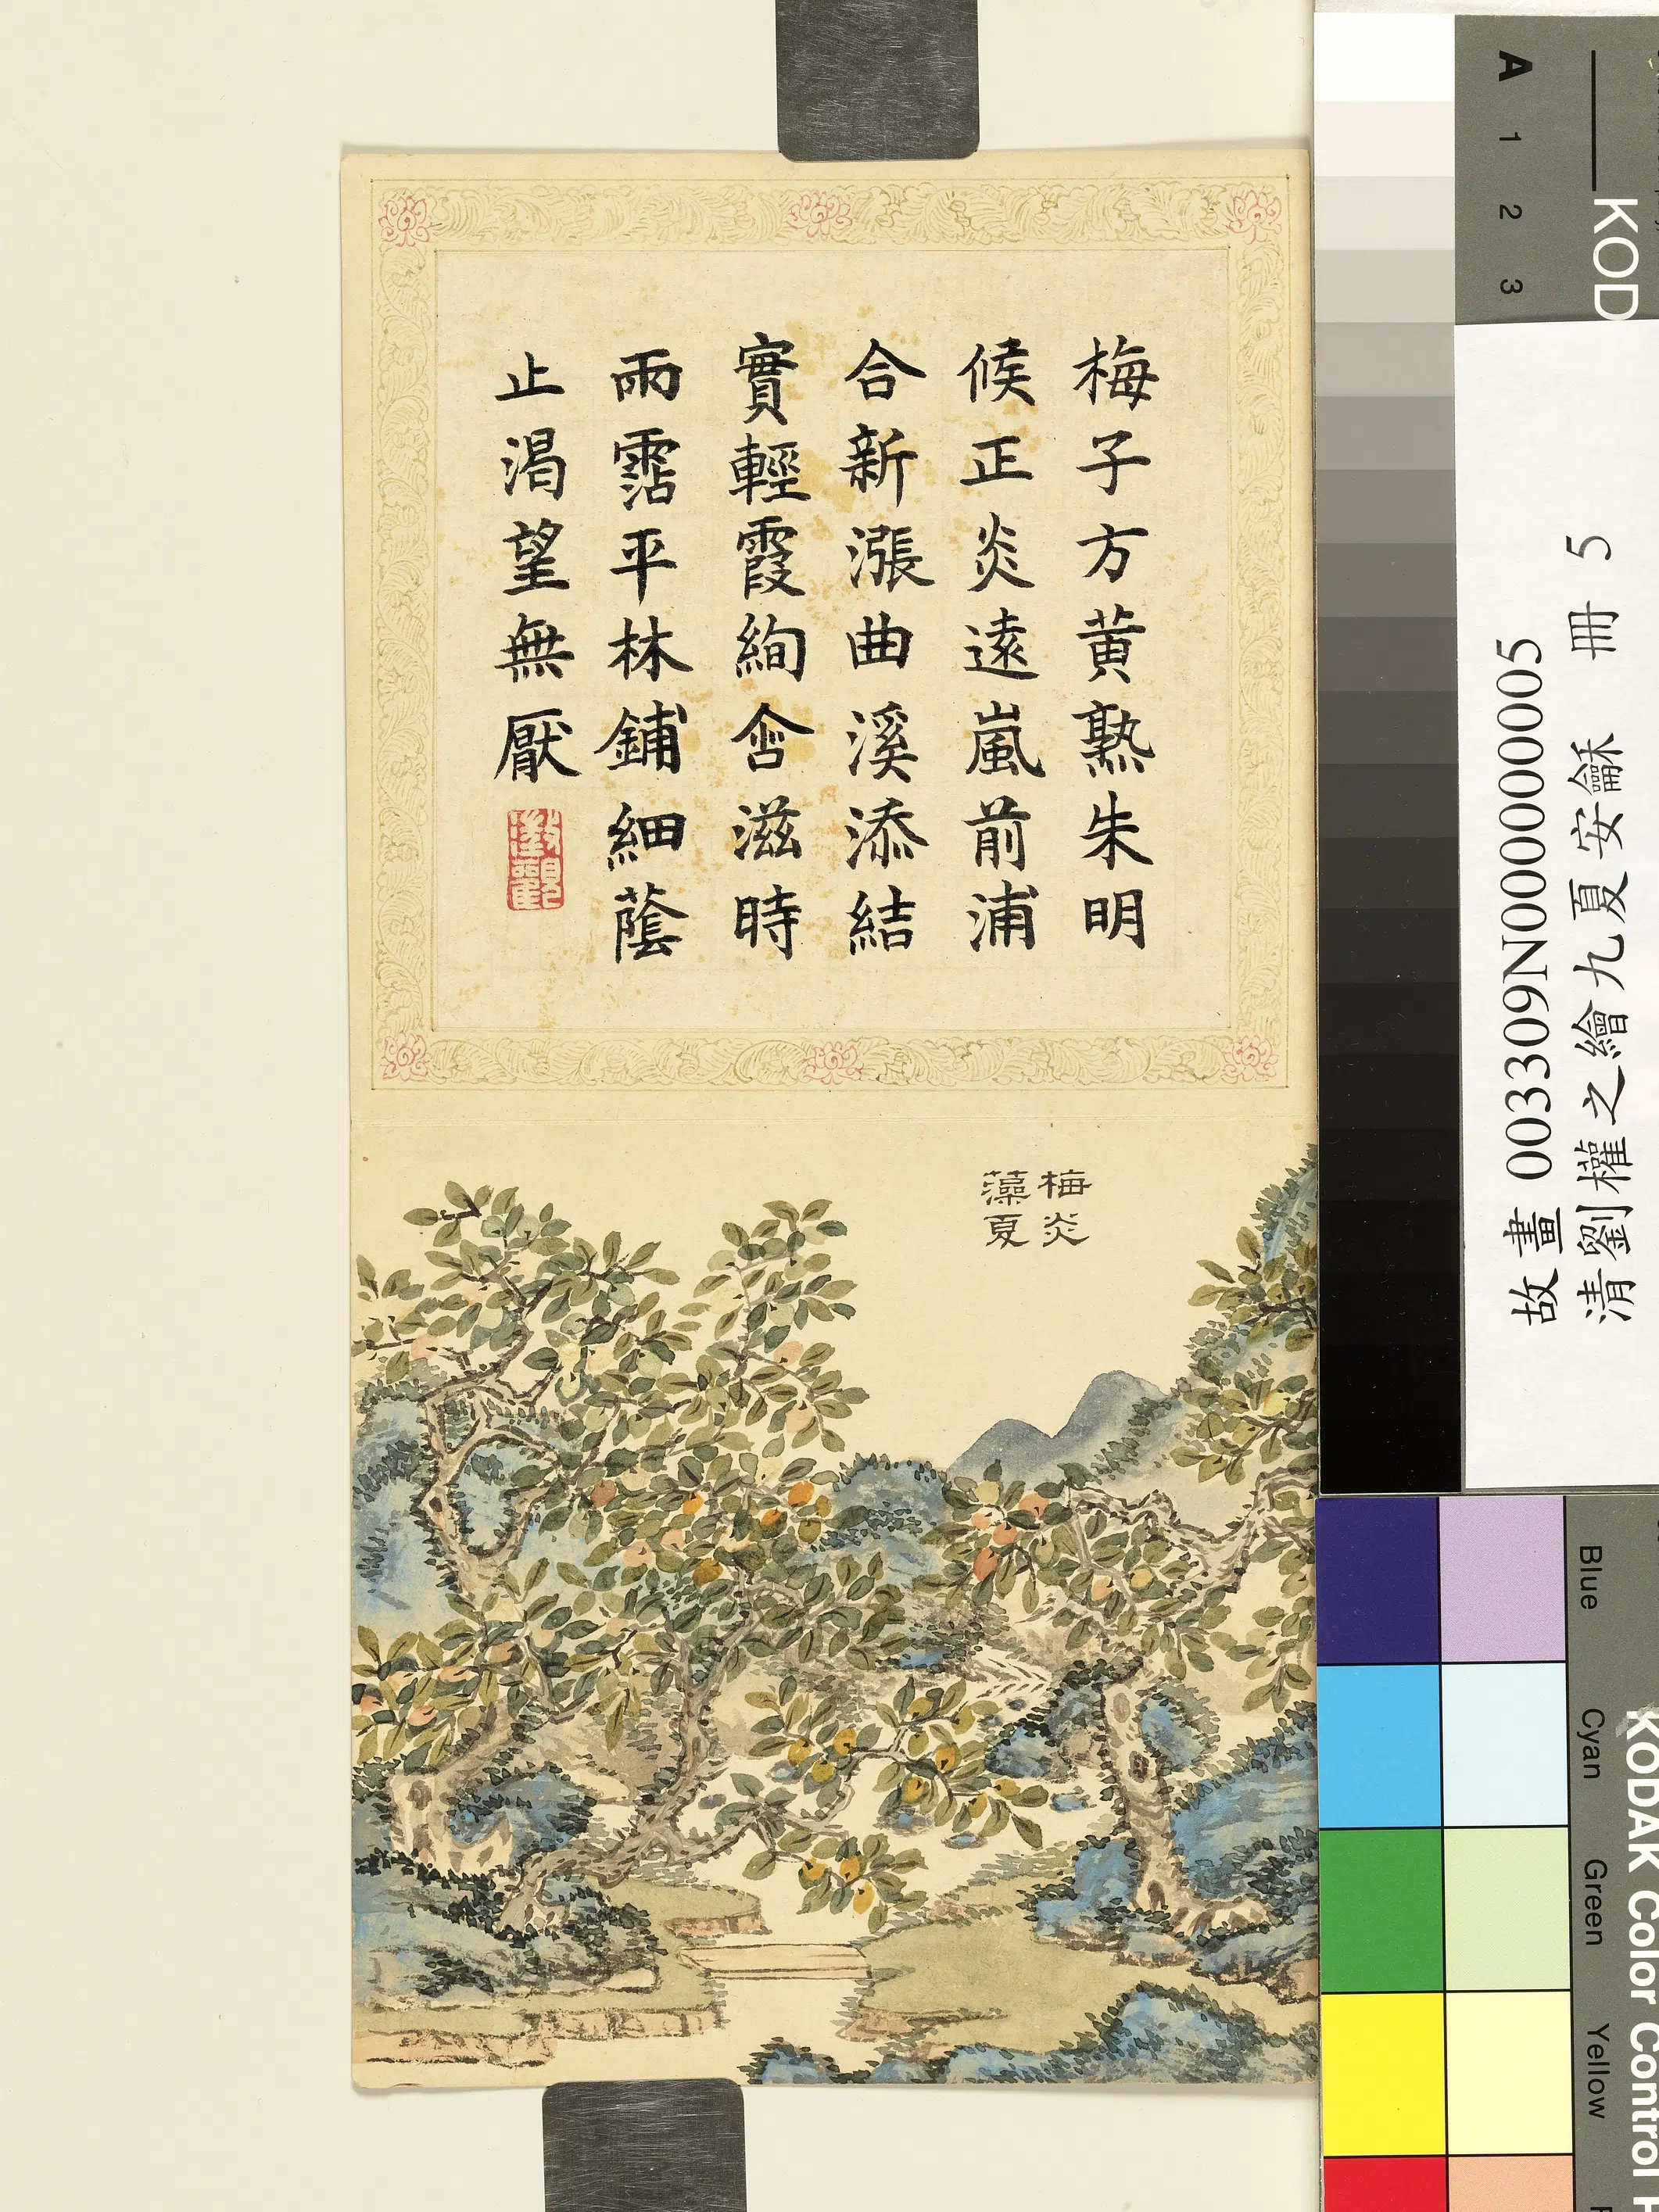 梅子方黄熟朱明
候正炎遠嵐前浦
合新漲曲溪添結
實輕霞絢含滋時
雨霑平林鋪細蔭
止渴望無厭
梅炎
藻夏
故畫 003309N000000005
清劉權之繪九夏安龢 冊 5
A 1 2 3
KOD
Blue
Cyan
Green
Yellow
KODAK Color Control